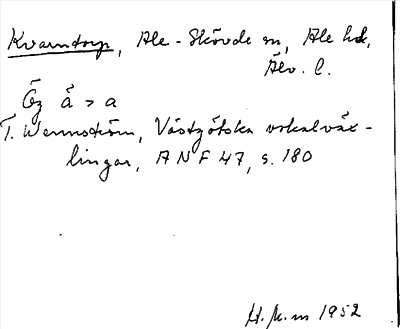 Kvarntorp, Ale-Skövde sn, Ale hd,
Älv. l.
Ög å > a
T. Wennström, Västgötska vokalväx-
lingar, ANF 47, s. 180
H. K-m 1952